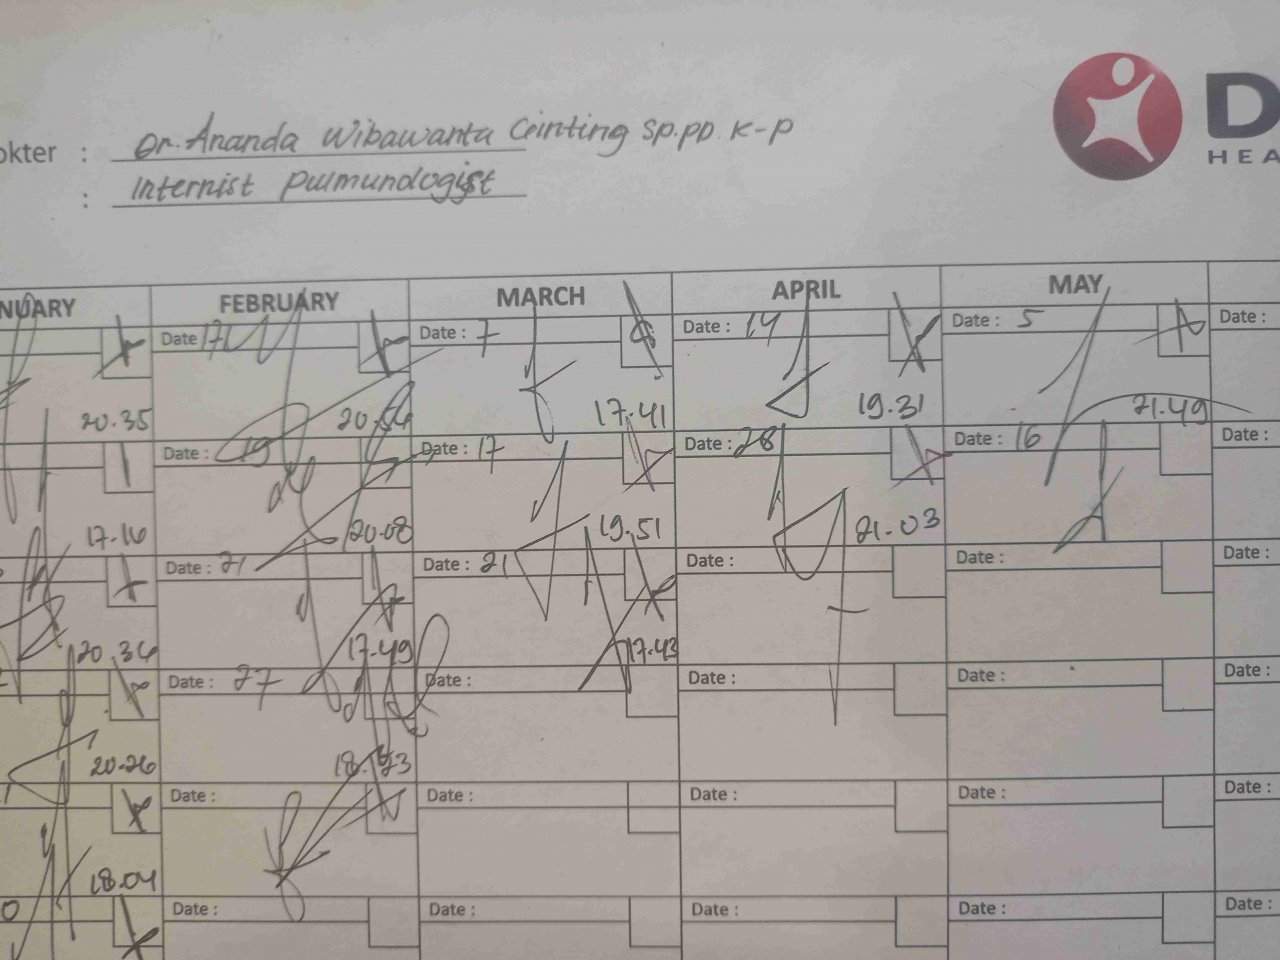 okter : Dr. Ananda Wibawanta Ginting Sp.PD. K-P
: Internist Pulmundologist
D
HEA
NUARY FEBRUARY MARCH APRIL MAY
Date : 17 Date : 7 Date : 14 Date : 5 Date :
20.35 20.54 17.41 19.31 21.49
Date : 19 Date : 17 Date : 28 Date : 16 Date :
17.16 20.08 19.51 21.03
Date : 21 Date : 21 Date : Date : Date :
20.34 17.49 17.43
Date : 27 Date : Date : Date : Date :
20.26 18.
Date : Date : Date : Date : Date :
18.04
0 Date : Date : Date : Date : Date :